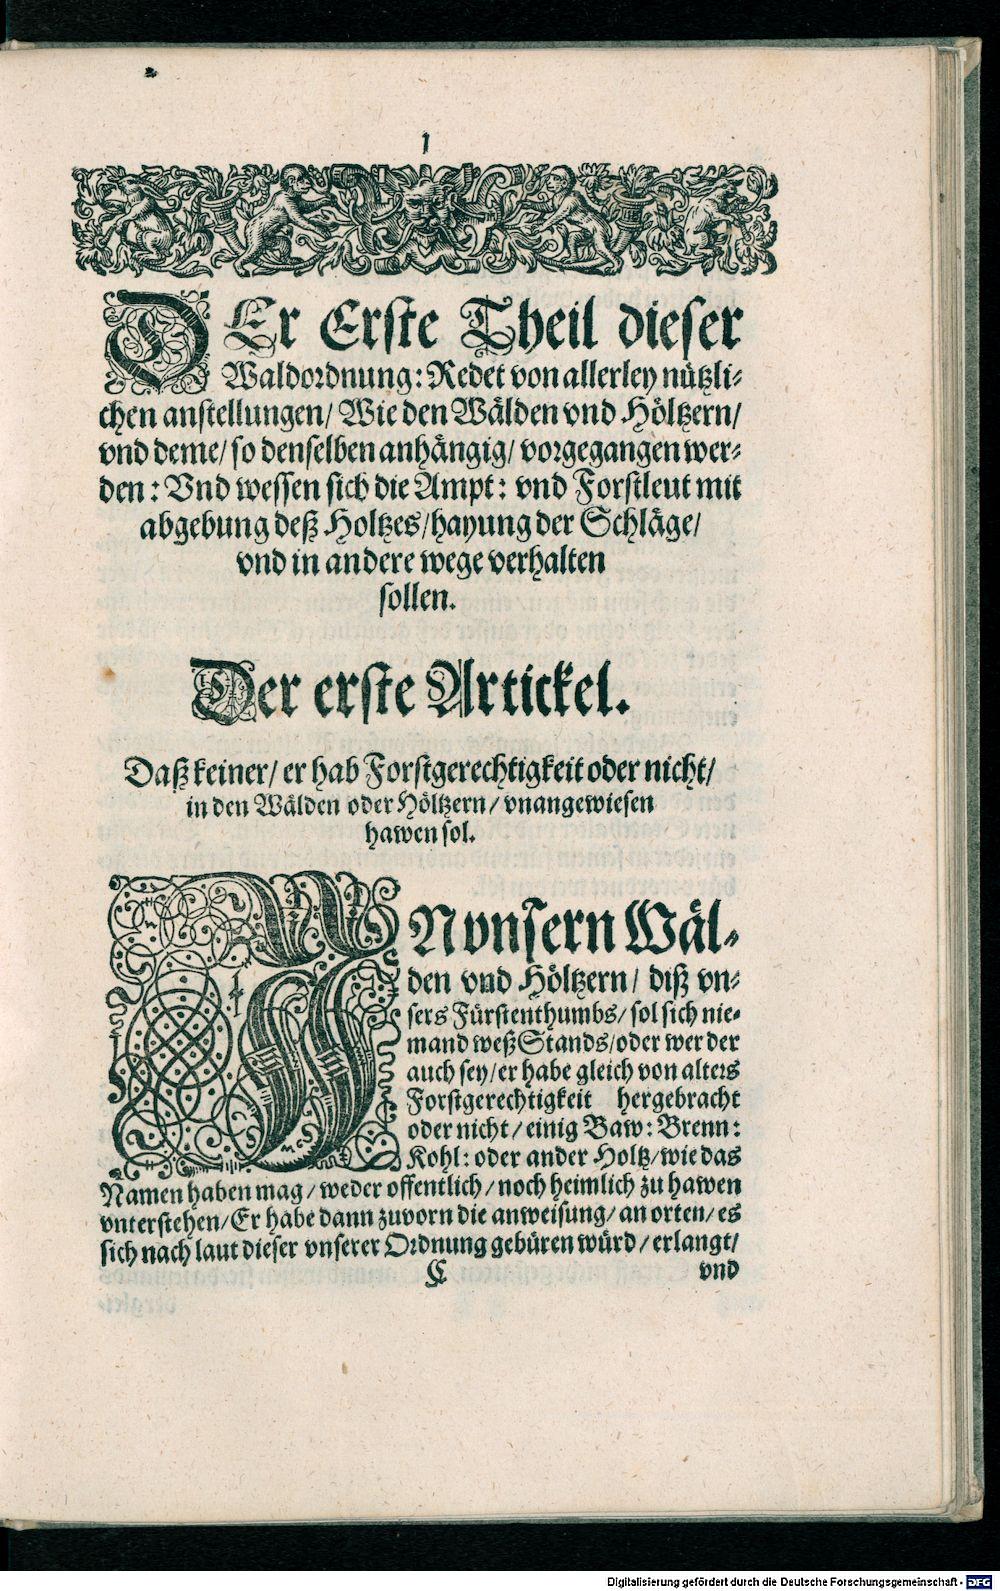 1
DEr Erste Theil dieser
Waldordnung: Redet von allerley nützli-
chen anstellungen/ Wie den Wälden vnd Höltzern/
vnd deme/ so denselben anhängig/ vorgegangen wer-
den: Vnd wessen sich die Ampt: vnd Forstleut mit
abgebung deß Holtzes/ hayung der Schläge/
vnd in andere wege verhalten
sollen.
Der erste Artickel.
Daß keiner/ er hab Forstgerechtigkeit oder nicht/
in den Wälden oder Höltzern/ vnangewiesen
hawen sol.
IN vnsern Wäl-
den vnd Höltzern/ diß vn-
sers Fürstenthumbs/ sol sich nie-
mand weß Stands/ oder wer der
auch sey/ er habe gleich von alters
Forstgerechtigkeit hergebracht
oder nicht/ einig Baw: Brenn:
Kohl: oder ander Holtz/ wie das
Namen haben mag/ weder offentlich/ noch heimlich zu hawen
vnterstehen/ Er habe dann zuvorn die anweisung/ an orten/ es
sich nach laut dieser vnserer Ordnung gebüren würd/ erlangt/
C vnd
Digitalisierung gefördert durch die Deutsche Forschungsgemeinschaft - DFG